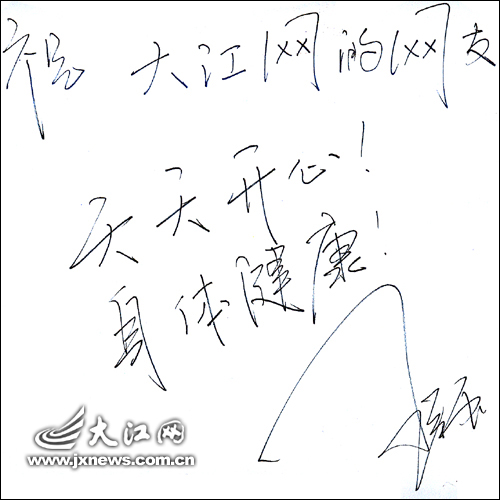 祝大江网的网友
天天开心!
身体健康!
大江网
www.jxnews.com.cn